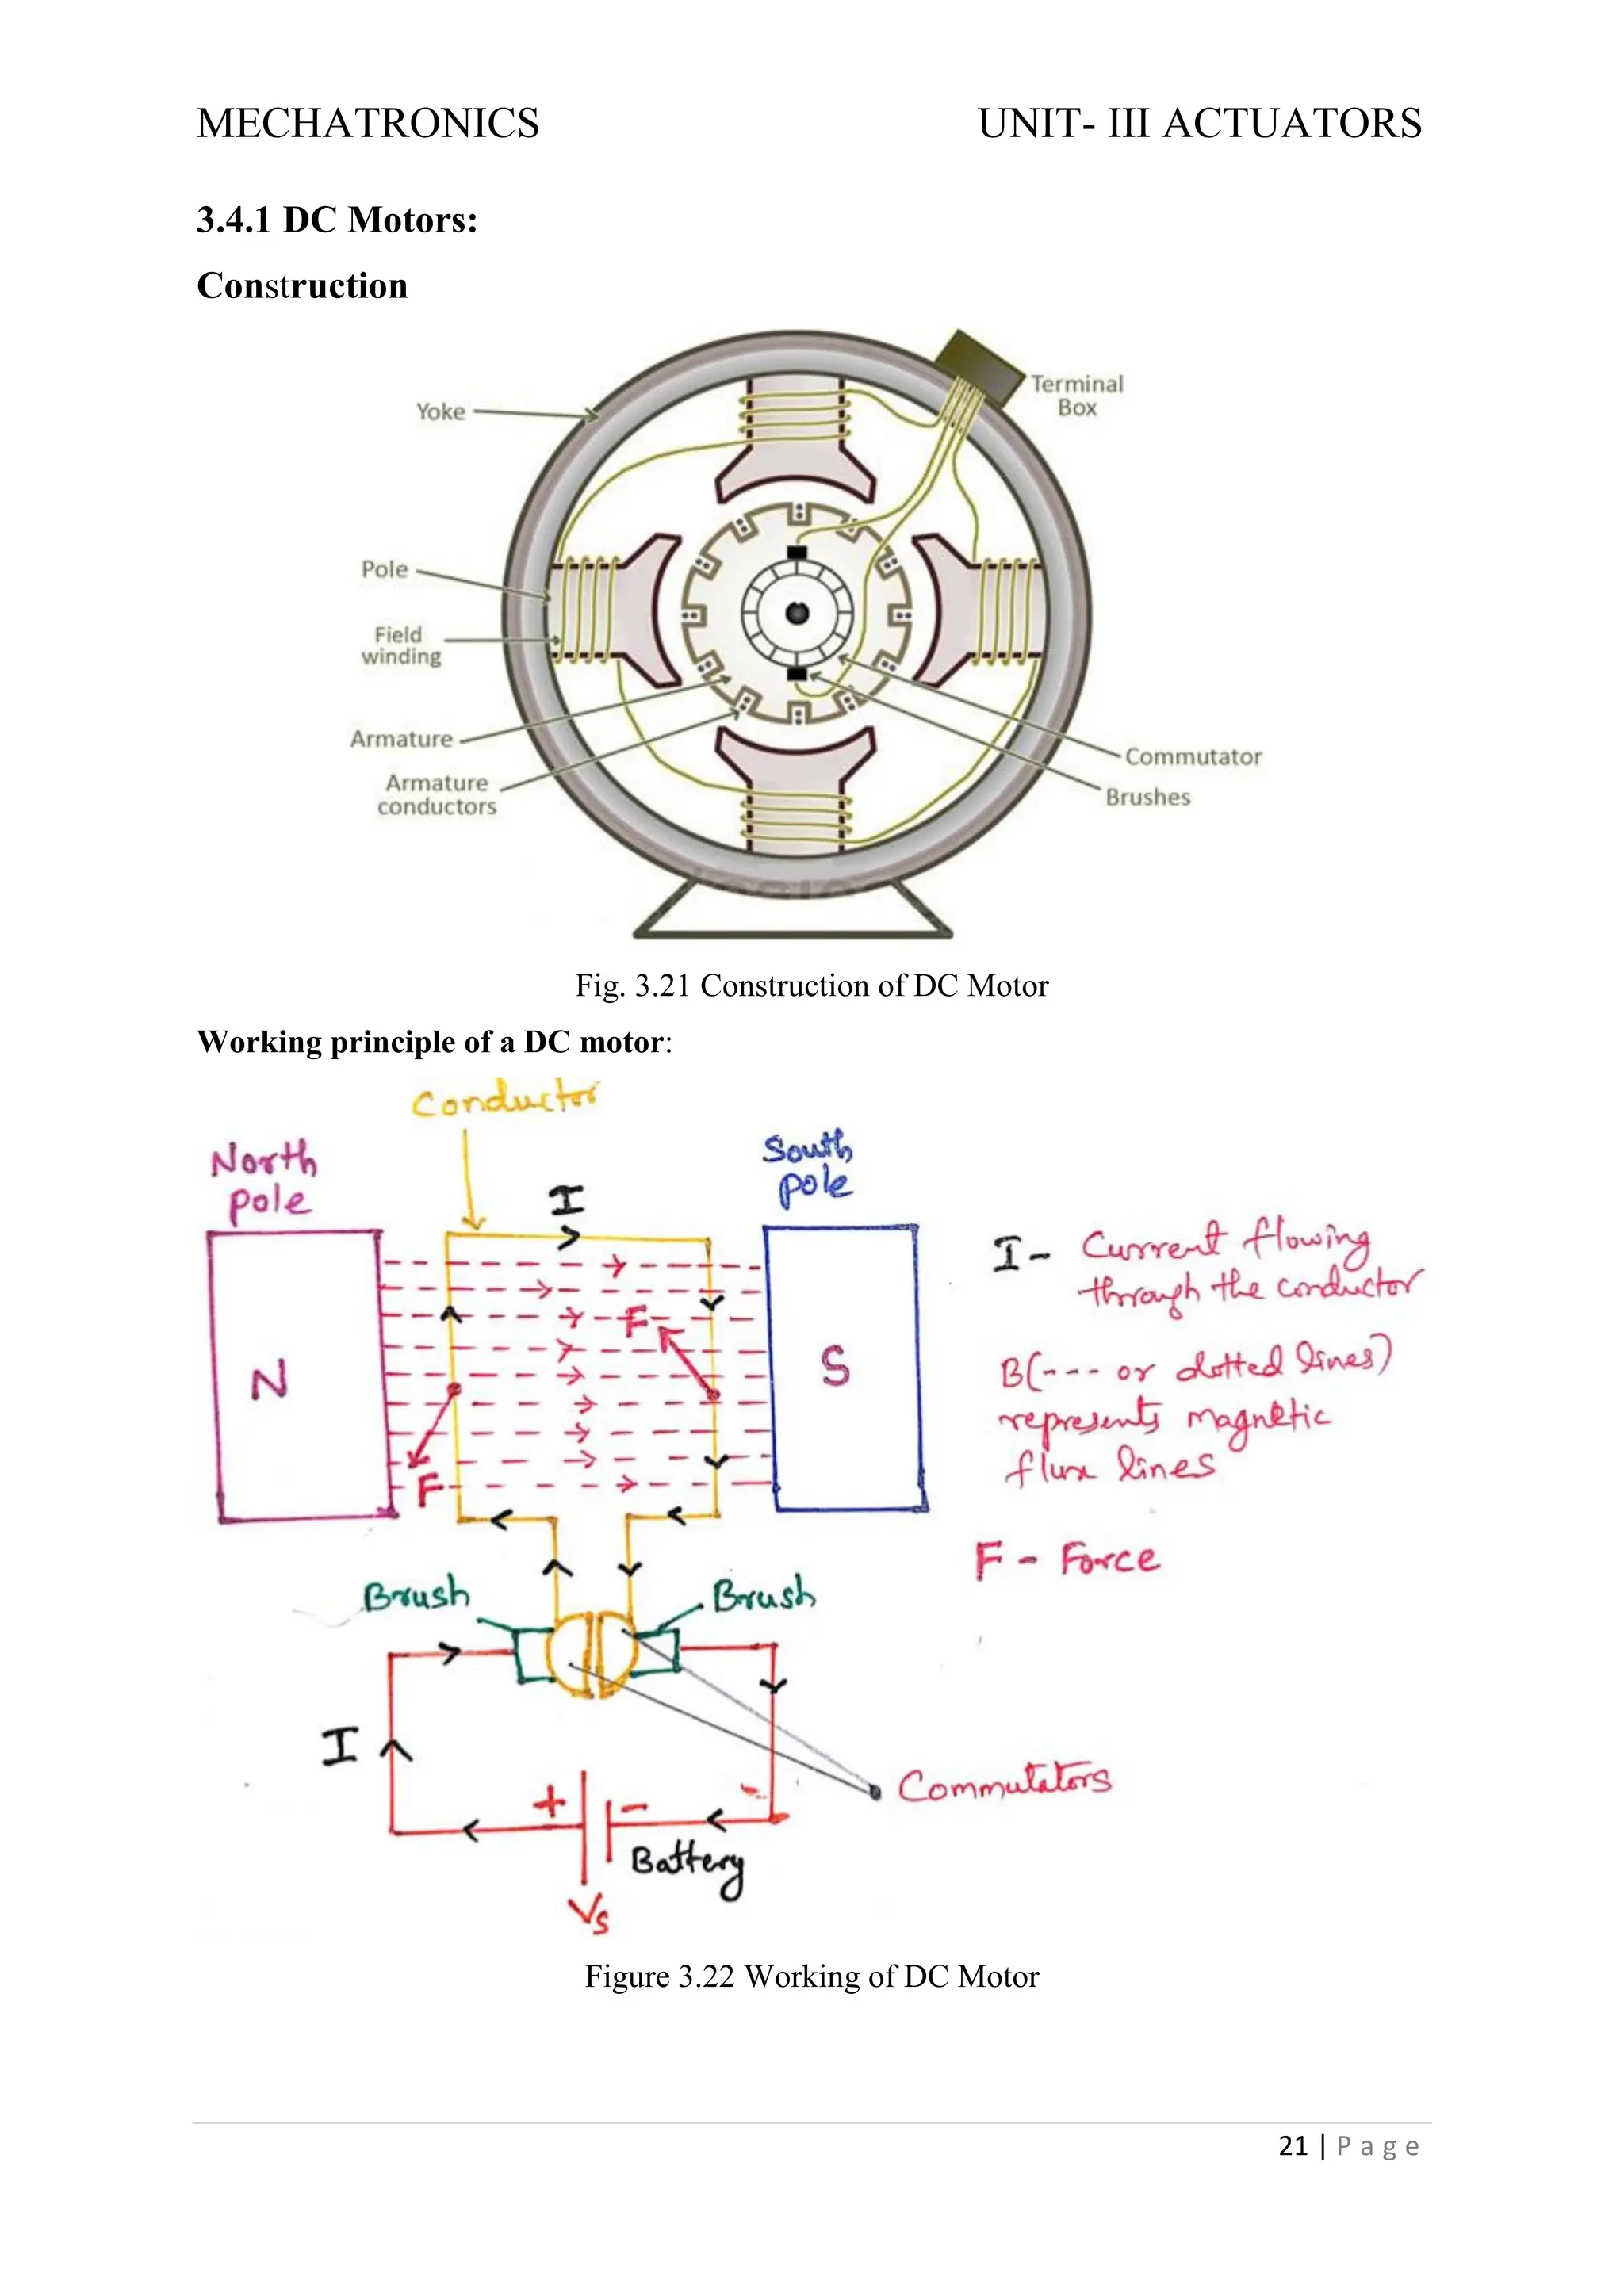 MECHATRONICS UNIT- III ACTUATORS
3.4.1 DC Motors:
Construction
Terminal
Box
Yoke
Pole
Field
winding
Armature
Armature
conductors
Commutator
Brushes
Fig. 3.21 Construction of DC Motor
Working principle of a DC motor:
Conductor
North
pole
South
pole
I
I - Current flowing
through the conductor
F
N
S
B(--- or dotted lines)
represents magnetic
flux lines
F
F - Force
Brush
Brush
I
+
-
-
Commutators
Battery
Vs
Figure 3.22 Working of DC Motor
21 | Page